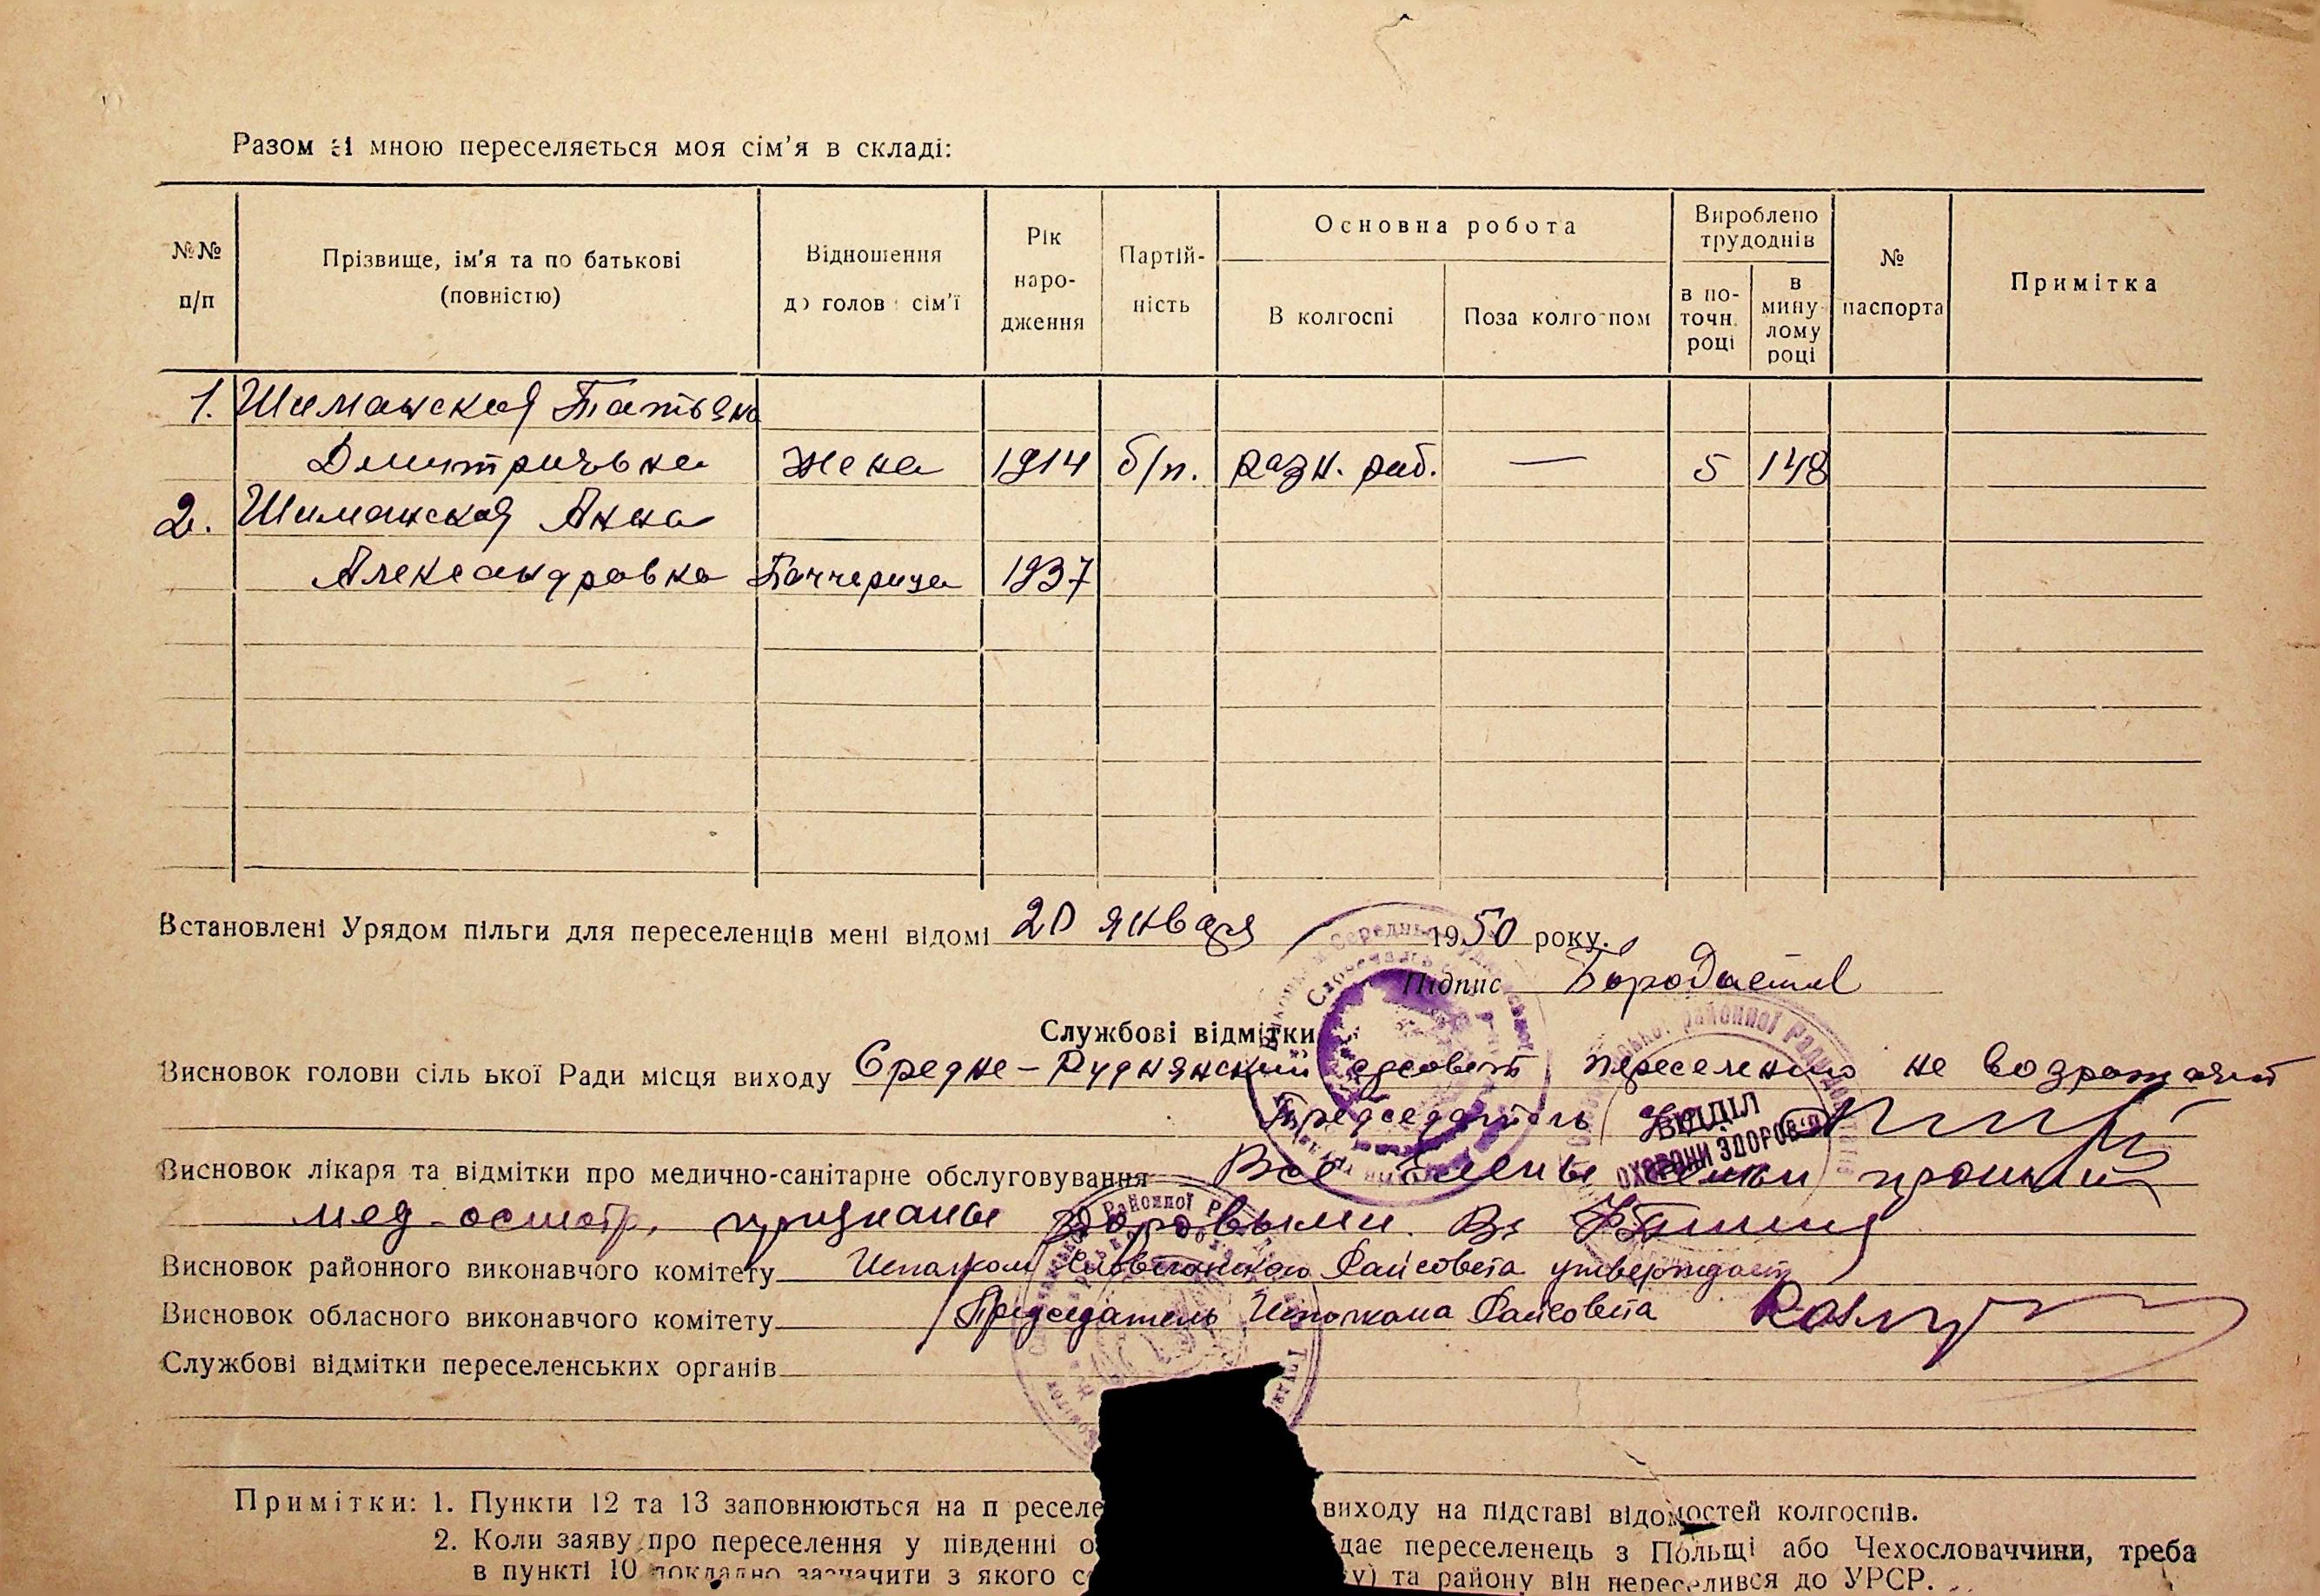 Разом зі мною переселяється моя сім'я в складі:
№№ п/п
Прізвище, ім'я та по батькові (повністю)
Відношення до голов сім'ї
Рік народження
Партійність
Основна робота
В колгоспі
Поза колгоспом
Вироблено трудоднів
в поточн. році
в минулому році
№ паспорта
Примітка
1. Шиманская Татьяна
Дмитриевна жена 1914 б/п. разн. раб. — 5 148
2. Шиманская Анна
Александровна Падчерица 1937
Встановлені Урядом пільги для переселенців мені відомі 20 января 1950 року.
Підпис
Службові відмітки
Висновок голови сільської Ради місця виходу Средне-Руднянский сельсовет переселению не возражает
Председатель
ВІДДІЛ
ОХОРОНИ ЗДОРОВ'Я
Висновок лікаря та відмітки про медично-санітарне обслуговування Все члены семьи прошли
мед-осмотр, признаны здоровыми.
Висновок районного виконавчого комітету Исполком Райсовета утверждает
Висновок обласного виконавчого комітету Председатель Исполкома Райсовета
Службові відмітки переселенських органів
Примітки: 1. Пункти 12 та 13 заповнюються на п реселе виходу на підставі відомостей колгоспів.
2. Коли заяву про переселення у південні о дає переселенець з Польщі або Чехословаччини, треба
в пункті 10 докладно зазначити з якого с ву) та району він переселився до УРСР.